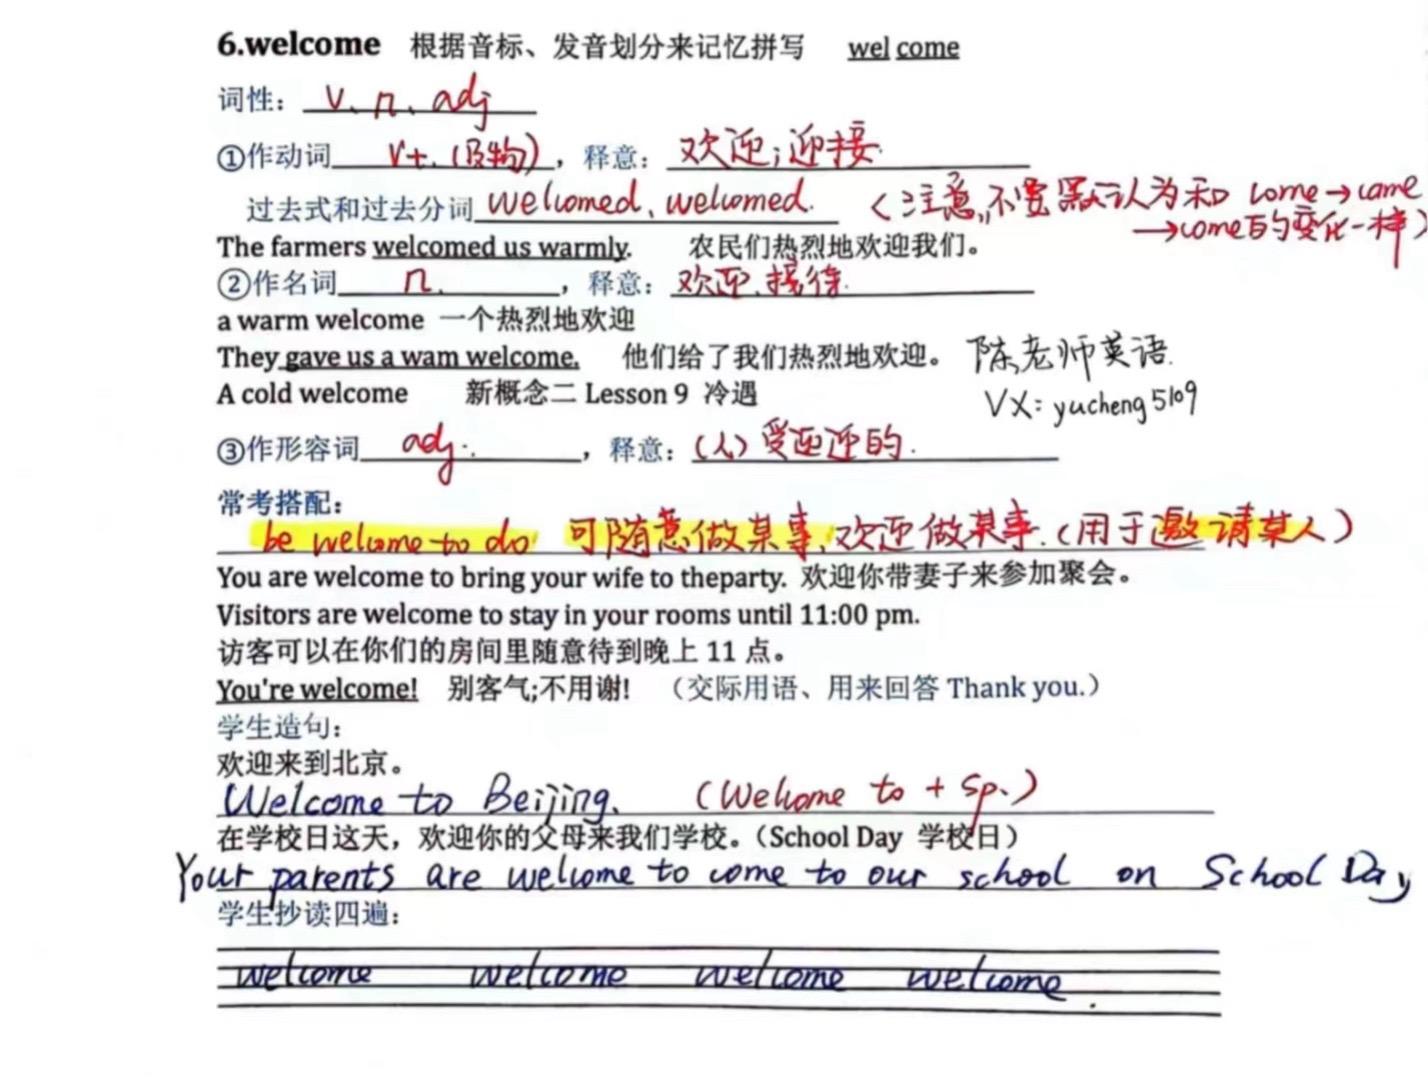 6.welcome 根据音标、发音划分来记忆拼写 wel come
词性： v. n. adj
①作动词 vt.（及物），释意： 欢迎；迎接.
过去式和过去分词 welcomed、welcomed. （注意，不要默认为和 come→came
→come的变化一样）
The farmers welcomed us warmly. 农民们热烈地欢迎我们。
②作名词 n. ，释意： 欢迎.接待.
a warm welcome 一个热烈地欢迎
They gave us a wam welcome. 他们给了我们热烈地欢迎。 陈老师英语.
A cold welcome 新概念二 Lesson 9 冷遇 VX: yucheng5109
③作形容词 adj. ，释意：（人）受迎迎的.
常考搭配：
be welcome to do 可随意做某事、欢迎做某事.（用于邀请某人）
You are welcome to bring your wife to theparty. 欢迎你带妻子来参加聚会。
Visitors are welcome to stay in your rooms until 11:00 pm.
访客可以在你们的房间里随意待到晚上 11 点。
You're welcome! 别客气;不用谢! （交际用语、用来回答 Thank you.）
学生造句：
欢迎来到北京。
Welcome to Beijing. （Welcome to + sp.）
在学校日这天，欢迎你的父母来我们学校。（School Day 学校日）
Your parents are welcome to come to our school on School Day
学生抄读四遍：
welcome welcome welcome welcome.